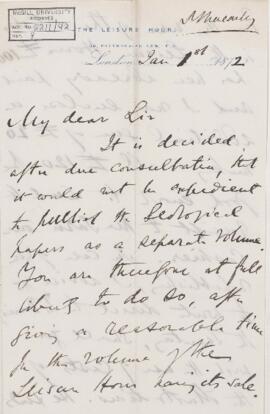 McGILL UNIVERSITY
ARCHIVES
ACC. NO.
REF.
THE LEISURE HOUR,
London Jan 1st 1872
My dear Sir
It is decided
after due consultation, that
it would not be expedient
to publish the Geological
papers as a separate volume.
You are therefore at full
liberty to do so, after
giving a reasonable time
for the volume of the
Leisure Hour having its sale.